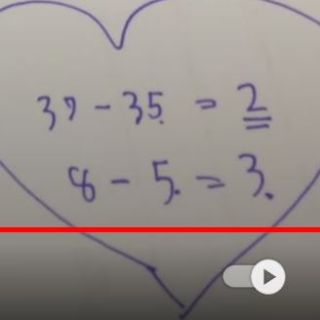 37 - 35. = 2
8 - 5. = 3.